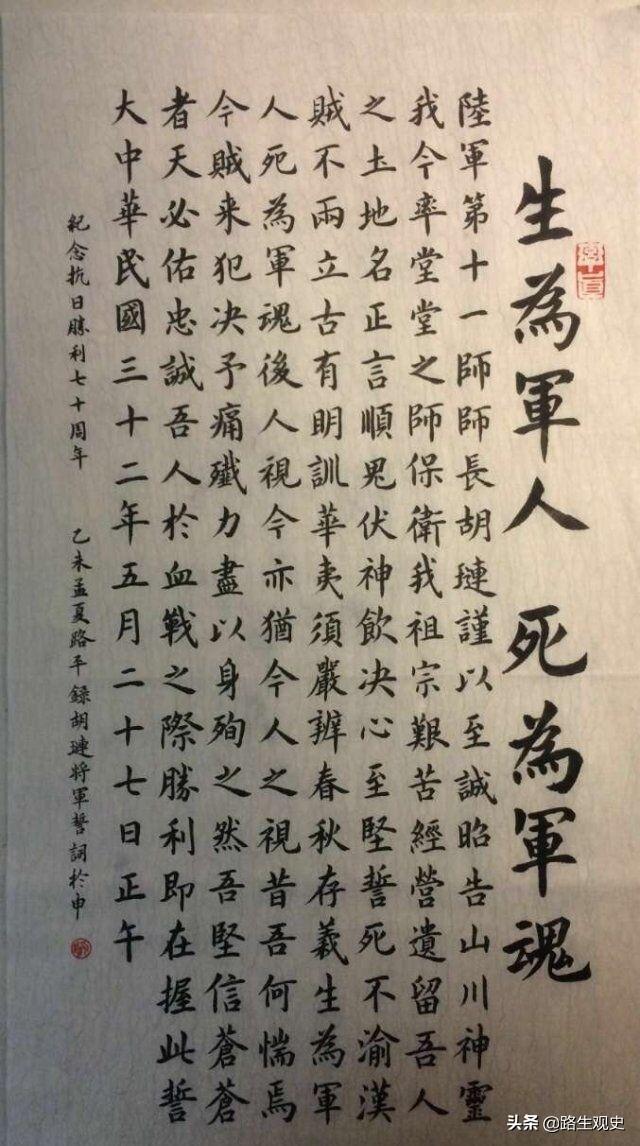 生為軍人 死為軍魂
陸軍第十一師師長胡璉謹以至誠昭告山川神靈
我今率堂堂之師保衛我祖宗艱苦經營遺留吾人
之土地名正言順鬼伏神飲决心至堅誓死不渝漢
賊不兩立古有明訓華夷須嚴辨春秋存義生為軍
人死為軍魂後人視今亦猶今人之視昔吾何惴焉
今賊来犯决予痛殲力盡以身殉之然吾堅信蒼蒼
者天必佑忠誠吾人於血戰之際勝利即在握此誓
大中華民國三十二年五月二十七日正午
紀念抗日勝利七十周年 乙未孟夏路平錄胡璉將軍誓詞於申
头条 @路生观史